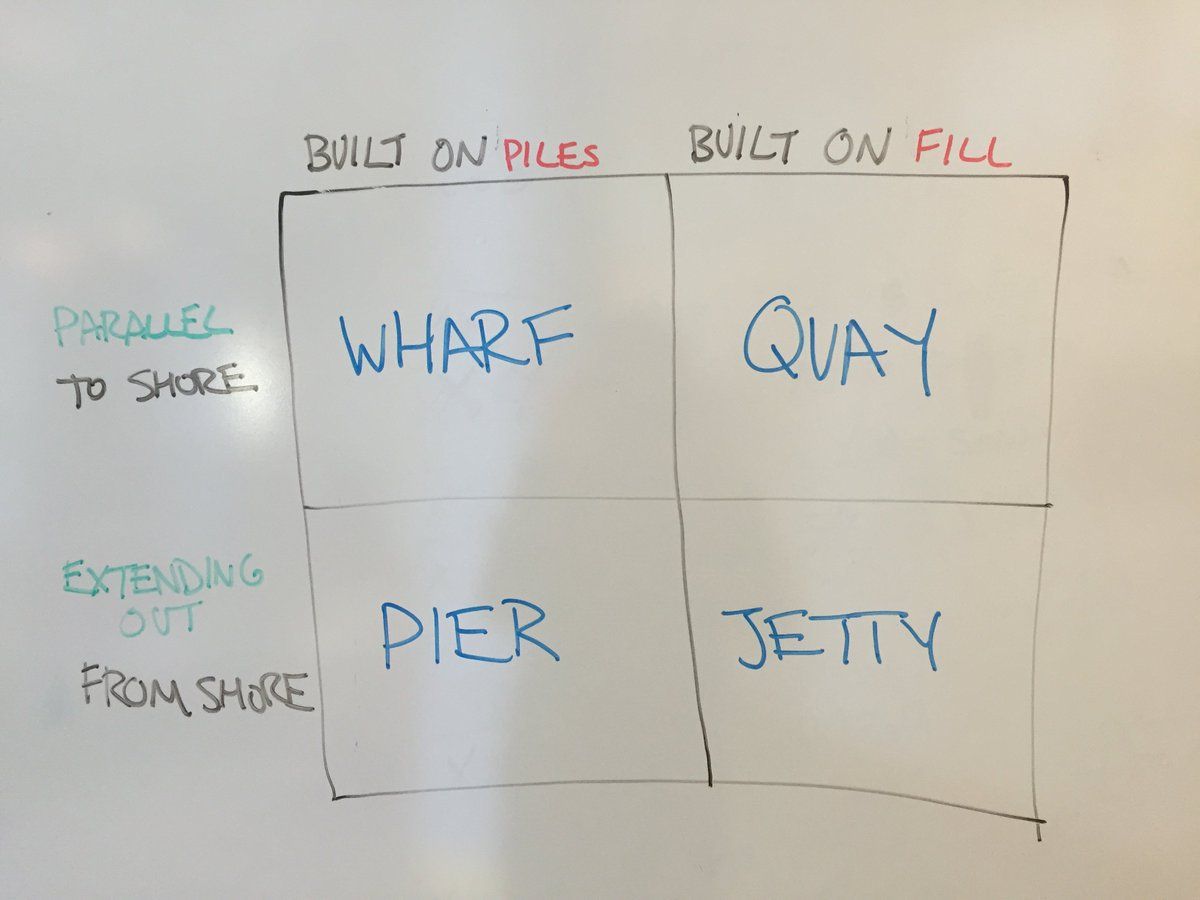 BUILT ON PILES
BUILT ON FILL
PARALLEL
TO SHORE
WHARF
QUAY
EXTENDING
OUT
FROM SHORE
PIER
JETTY